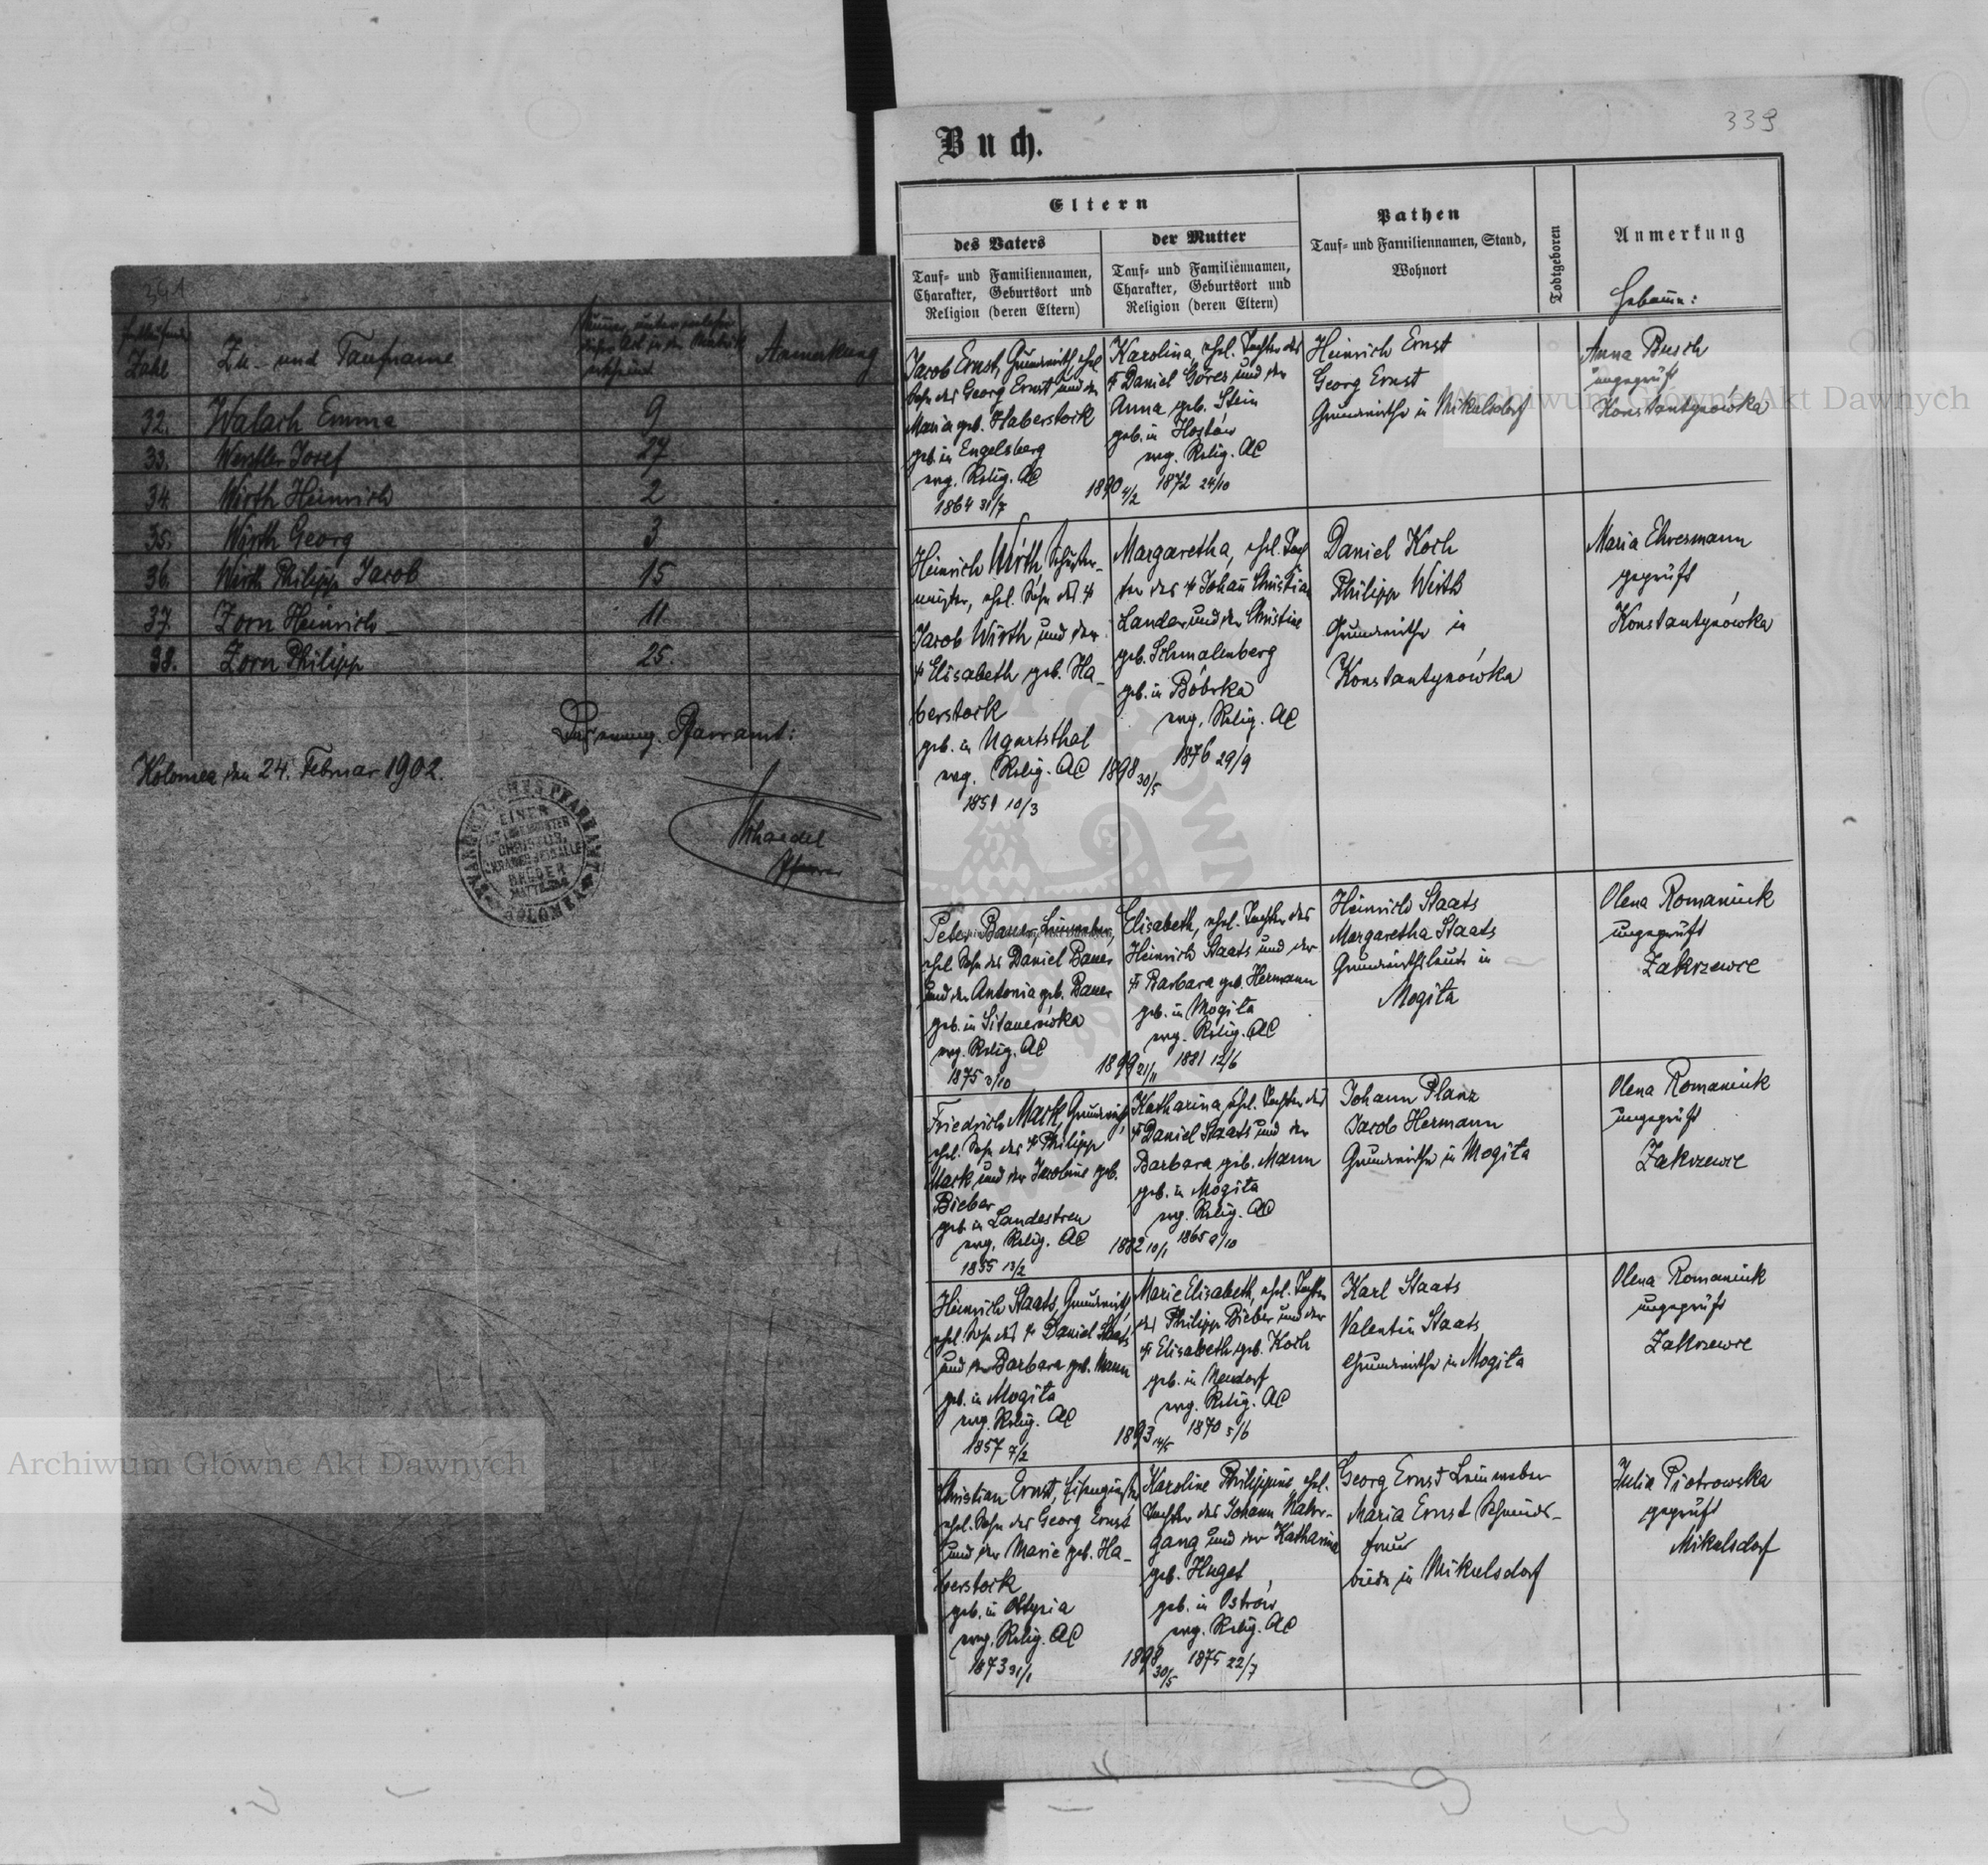 341
Zahl
Zu- und Taufname
Anmerkung
32. Walach Emma 9
33. Werstler Josef 27
34. Wirth Heinrich 2
35. Wirth Georg 3
36. Wirth Philipp Jacob 15
37. Zorn Heinrich 11.
38. Zorn Philipp 25.
Das evang. Pfarramt:
Kolomea den 24. Februar 1902.
Pfarrer
Archiwum Główne Akt Dawnych
339
Buch.
Eltern
des Vaters
Tauf- und Familiennamen,
Charakter, Geburtsort und
Religion (deren Eltern)
der Mutter
Tauf- und Familiennamen,
Charakter, Geburtsort und
Religion (deren Eltern)
Pathen
Tauf- und Familiennamen, Stand,
Wohnort
Todtgeboren
Anmerkung
Hebamme:
Jacob Ernst, Grundwirth, ehel.
Sohn des Georg Ernst und der
Maria geb. Haberstock
geb. in Engelsberg
evg. Relig. AC
1864 31/7
1890 4/2
Karolina, ehel. Tochter des
† Daniel Göres und der
Anna geb. Stein
geb. in Hostów
evg. Relig. AC
1872 24/10
Heinrich Ernst
Georg Ernst
Grundwirthe in Mikulsdorf
Anna Busch
ungeprüft
Konstantynówka
Archiwum Główne Akt Dawnych
Heinrich Wirth, Schuster-
meister, ehel. Sohn des †
Jacob Wirth und der
† Elisabeth geb. Ha-
berstock
geb. in Ugartsthal
evg. Relig. AC
1851 10/3
1898 30/5
Margaretha, ehel. Toch
ter des † Johann Christian
Lander und der Christine
geb. Schmalenberg
geb. in Bóbrka
evg. Relig. AC
1876 29/9
Daniel Koch
Philipp Wirth
Grundwirthe in
Konstantynówka
Maria Ehresmann
geprüft
Konstantynówka
Peter Bauer, Leinweber,
ehel. Sohn des Daniel Bauer
und der Antonia geb. Bauer
geb. in Sitauerówka
evg. Relig. AC
1875 3/10
1899 21/11
Elisabeth, ehel. Tochter des
Heinrich Staats und der
† Barbara geb. Hermann
geb. in Mogita
evg. Relig. AC
1881 12/6
Heinrich Staats
Margaretha Staats
Grundwirthsleute in
Mogita
Olena Romaniuk
ungeprüft
Zakrzewce
Friedrich Mark, Grundwirth,
ehel. Sohn des † Philipp
Mark und der Karoline geb.
Bieber
geb. in Landestreu
evg. Relig. AC
1855 13/2
1882 10/1
Katharina, ehel. Tochter des
† Daniel Staats und der
Barbara geb. Mann
geb. in Mogita
evg. Relig. AC
1865 9/10
Johann Planz
Jacob Hermann
Grundwirthe in Mogita
Olena Romaniuk
ungeprüft
Zakrzewce
Heinrich Staats, Grundwirth,
ehel. Sohn des † Daniel Staats
und der Barbara geb. Mann
geb. in Mogita
evg. Relig. AC
1857 7/2
1893 14/5
Marie Elisabeth, ehel. Tochter
des Philipp Bieber und der
† Elisabeth geb. Koch
geb. in Neudorf
evg. Relig. AC
1870 5/6
Karl Staats
Valentin Staats
Grundwirthe in Mogita
Olena Romaniuk
ungeprüft
Zakrzewce
Christian Ernst,
ehel. Sohn des Georg Ernst
und der Marie geb. Ha-
berstock
geb. in Ottynia
evg. Relig. AC
1873 31/1
1898 30/5
Karoline Philippine, ehel.
Tochter des Johann Nahr-
gang und der Katharina
geb. Huget
geb. in Ostrów
evg. Relig. AC
1875 22/7
Georg Ernst Leinweber
Maria Ernst Schmids-
frau
beide in Mikulsdorf
Julia Piotrowska
geprüft
Mikulsdorf